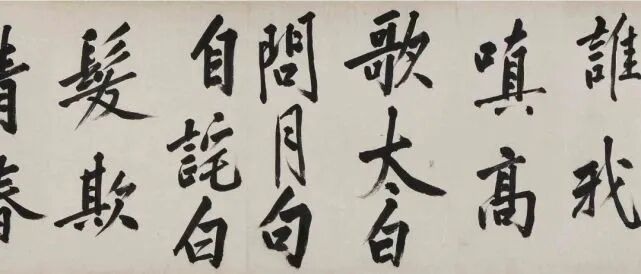 誰我
嗔高
歌太白
問月句
自詫白
髮欺
青春